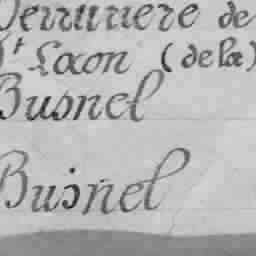 Verruriere de
St Laon (de la)
Busnel
Buisñel